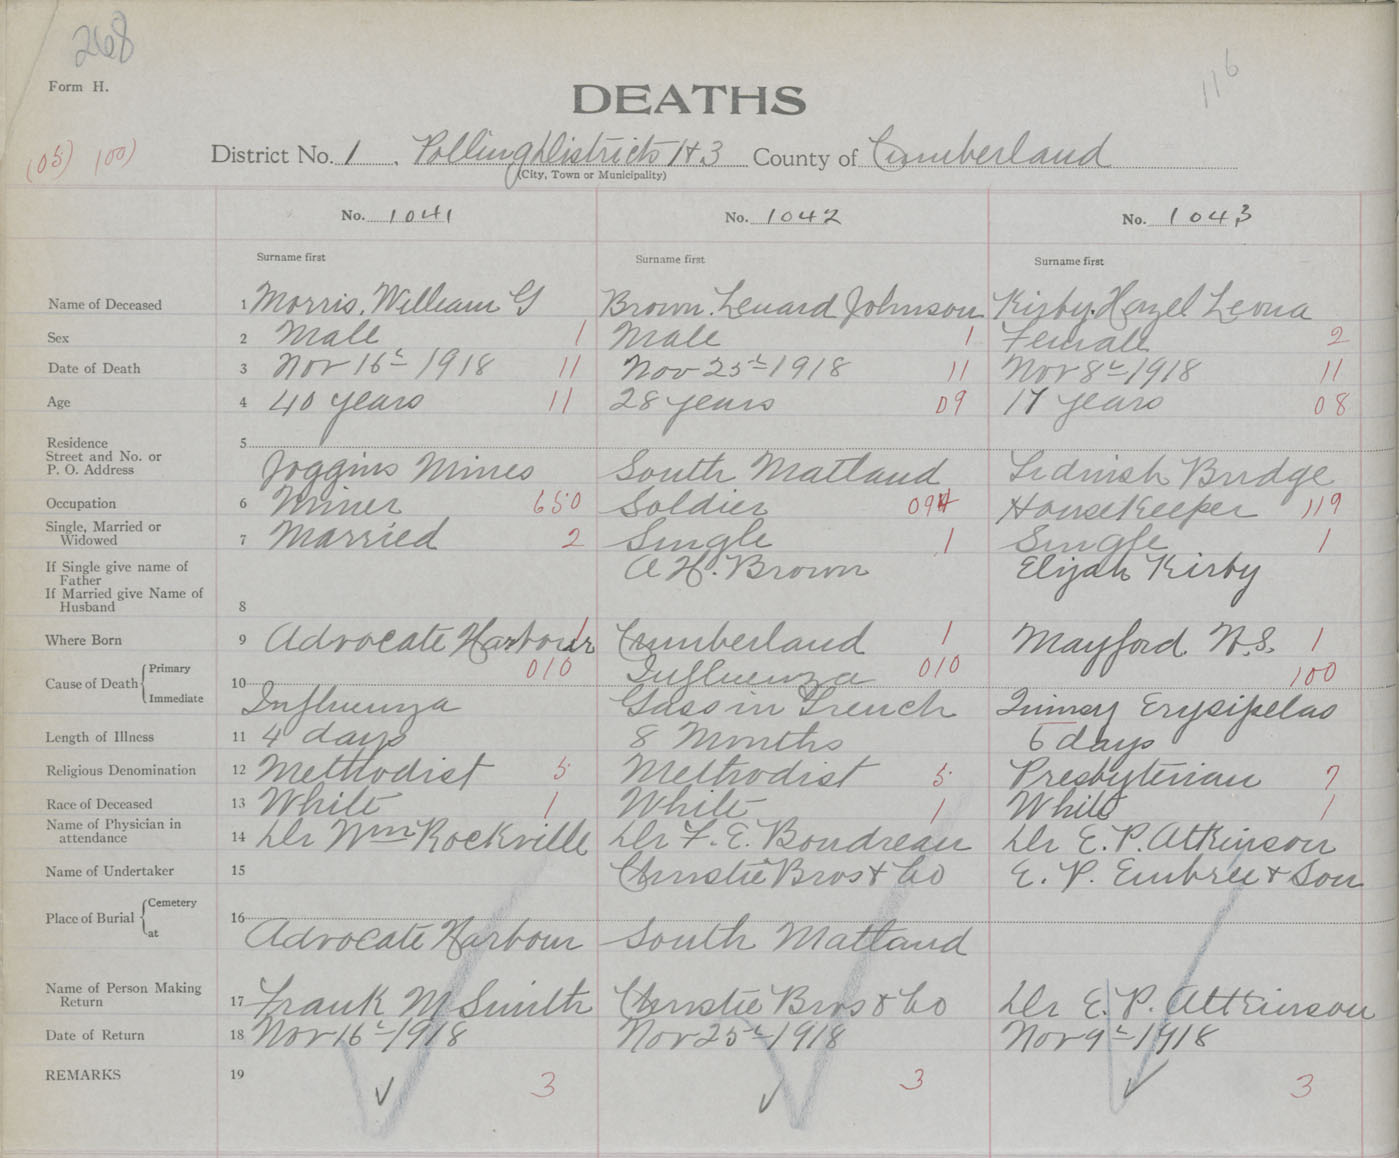 268
116
Form H.
DEATHS
(05) 100)
District No. 1 . Polling Districts 1+3 County of Cumberland
(City, Town or Municipality)
No. 1041 No. 1042 No. 1043
Surname first Surname first Surname first
Name of Deceased 1 Morris, William G Brown. Lenard Johnson Kirby. Hazel Leona
Sex 2 Male 1 Male 1 Female 2
Date of Death 3 Nov 16th 1918 11 Nov 25th 1918 11 Nov 8th 1918 11
Age 4 40 years 11 28 years 09 17 years 08
Residence 5
Street and No. or
P. O. Address Joggins Mines South Matland Lidnish Bridge
Occupation 6 Miner 650 Soldier 094 HouseKeeper 119
Single, Married or
Widowed 7 Married 2 Single 1 Single 1
If Single give name of
Father A H. Brown Elijah Kirby
If Married give Name of
Husband 8
Where Born 9 Advocate Harbour 1 Cumberland 1 Mayford N.S. 1
Cause of Death Primary 10 010 Influenza 010 100
Immediate Influenza Gass in Trench Quinsy Erysipelas
Length of Illness 11 4 days 8 Months 6 days
Religious Denomination 12 Methodist 5 Methodist 5 Presbyterian 7
Race of Deceased 13 White 1 White 1 White 1
Name of Physician in
attendance 14 Dr Wm Rockville Dr F. E. Boudreau Dr E. P. Atkinson
Name of Undertaker 15 Christie Bros & Co E. P. Embree & Son
Place of Burial Cemetery 16
at Advocate Harbour South Matland
Name of Person Making
Return 17 Frank M Smith Christie Bros & Co Dr E. P. Atkinson
Date of Return 18 Nov 16th 1918 Nov 25th 1918 Nov 9th 1918
REMARKS 19 3 3 3